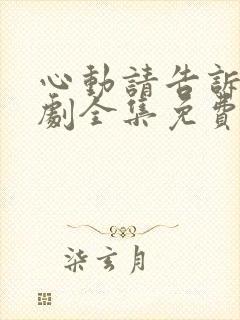 心動請告訴
劇全集免費
柒玄月